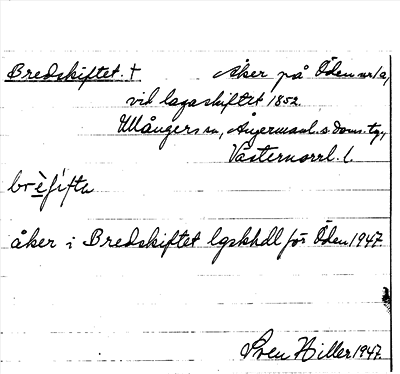 Bredskiftet. † Åker på Öden nr 1 a,
vid lagaskiftet 1852.
Ullångers sn, Ångermanl. s. doms. tg.,
Västernorrl. l.
åker i Bredskiftet lgskhdl för Öden 1947.
Sven Hiller 1947.